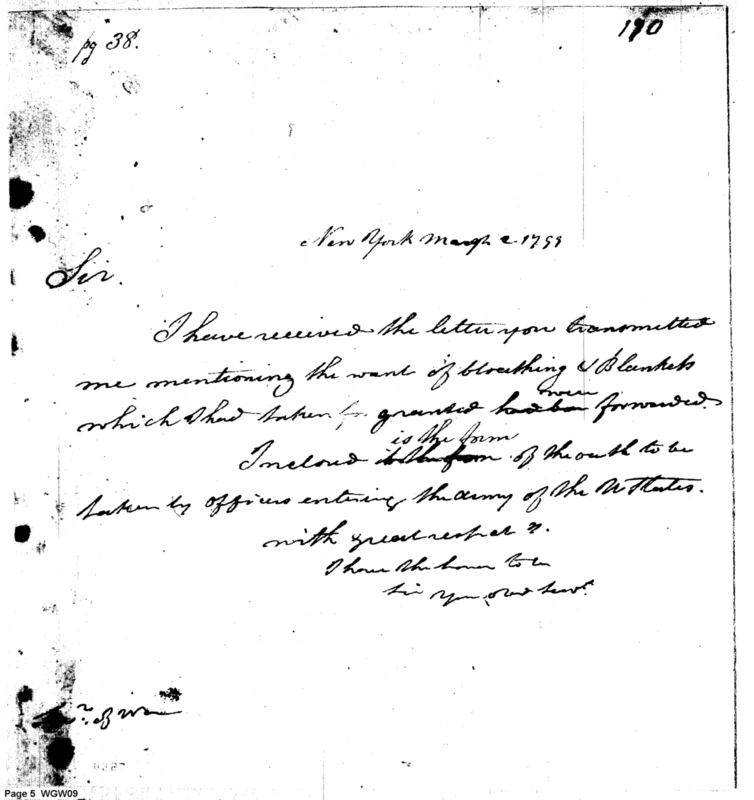 pg 38.
190
New York March 2 1799
Sir.
I have received the letter you transmitted
me mentioning the want of Cloathing & Blankets
which I had taken for granted had been were forwarded.
Inclosed is the form is the form of the oath to be
taken by officers entering the army of the U States.
with great respect &.
I have the honor to be
Sir Your Obed Servt.
of War
Page 5 WGW09